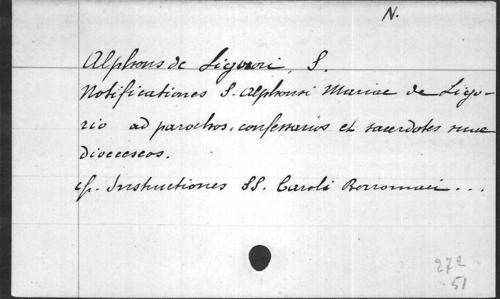 N.
Alphons de Liguori, S.
Notificationes S. Alphonsi Mariae de Ligo-
rio ad parochos, confessarios et sacerdotes suae
dioeceseos.
cf. Instructiones SS. Caroli Borromaei ...
272
51